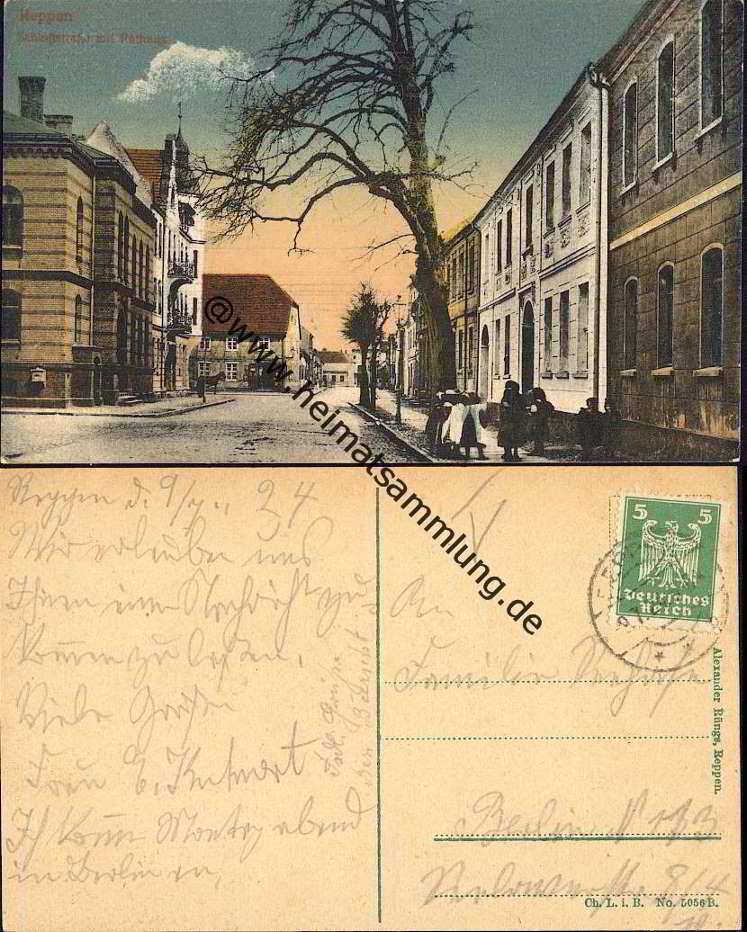 Reppen
Schloßstraße mit Rathaus
@www.heimatsammlung.de
Reppen d. 9/7. 24
Wir erlauben uns
Ihnen eine Nachricht zu
kommen zu lassen.
Viele Grüße
Frau
Ich komme Montag abend
in Berlin an,
An
Familie
Berlin N 113
5 5
Deutsches
Reich
Alexander Rüngs, Reppen.
Ch. L. i. B. No. 5056 B.